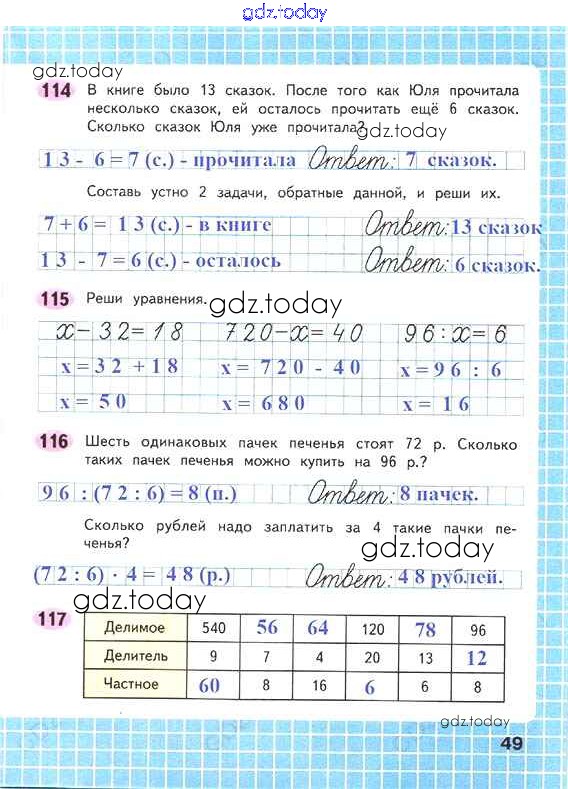 gdz.today
gdz.today
114 В книге было 13 сказок. После того как Юля прочитала
несколько сказок, ей осталось прочитать ещё 6 сказок.
Сколько сказок Юля уже прочитала?
gdz.today
13 - 6 = 7 (с.) - прочитала Ответ: 7 сказок.
Составь устно 2 задачи, обратные данной, и реши их.
7 + 6 = 13 (с.) - в книге Ответ: 13 сказок
13 - 7 = 6 (с.) - осталось Ответ: 6 сказок.
115 Реши уравнения.
gdz.today
x − 32 = 18 720 − x = 40 96 : x = 6
x = 32 + 18 x = 720 - 40 x = 96 : 6
x = 50 x = 680 x = 16
116 Шесть одинаковых пачек печенья стоят 72 р. Сколько
таких пачек печенья можно купить на 96 р.?
96 : (72 : 6) = 8 (п.) Ответ: 8 пачек.
Сколько рублей надо заплатить за 4 такие пачки пе-
ченья?
gdz.today
(72 : 6) · 4 = 48 (р.) Ответ: 48 рублей.
gdz.today
117 Делимое 540 56 64 120 78 96
Делитель 9 7 4 20 13 12
Частное 60 8 16 6 6 8
gdz.today
49